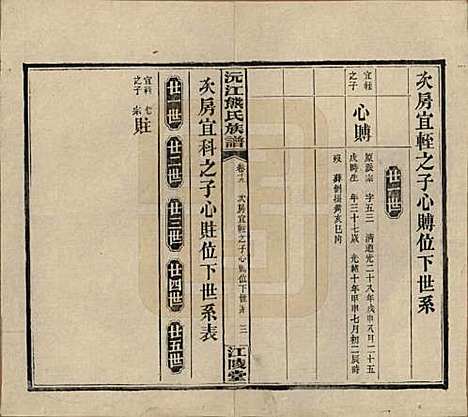 次房宜輊之子心賻位下世系
廿一世
宜輊
之子
心賻
原派宗 字五三 清道光二十八年戊申八月二十五
戌時生 年三十七歲 光緒十年甲申七月初二辰時
歿 葬
亥巳向
沅江熊氏族譜
卷
次房宜輊之子心賻位下世系 三
江陵堂
次房宜科之子心賍位下世系表
廿一世
廿二世
廿三世
廿四世
廿五世
宜科
之子
賍